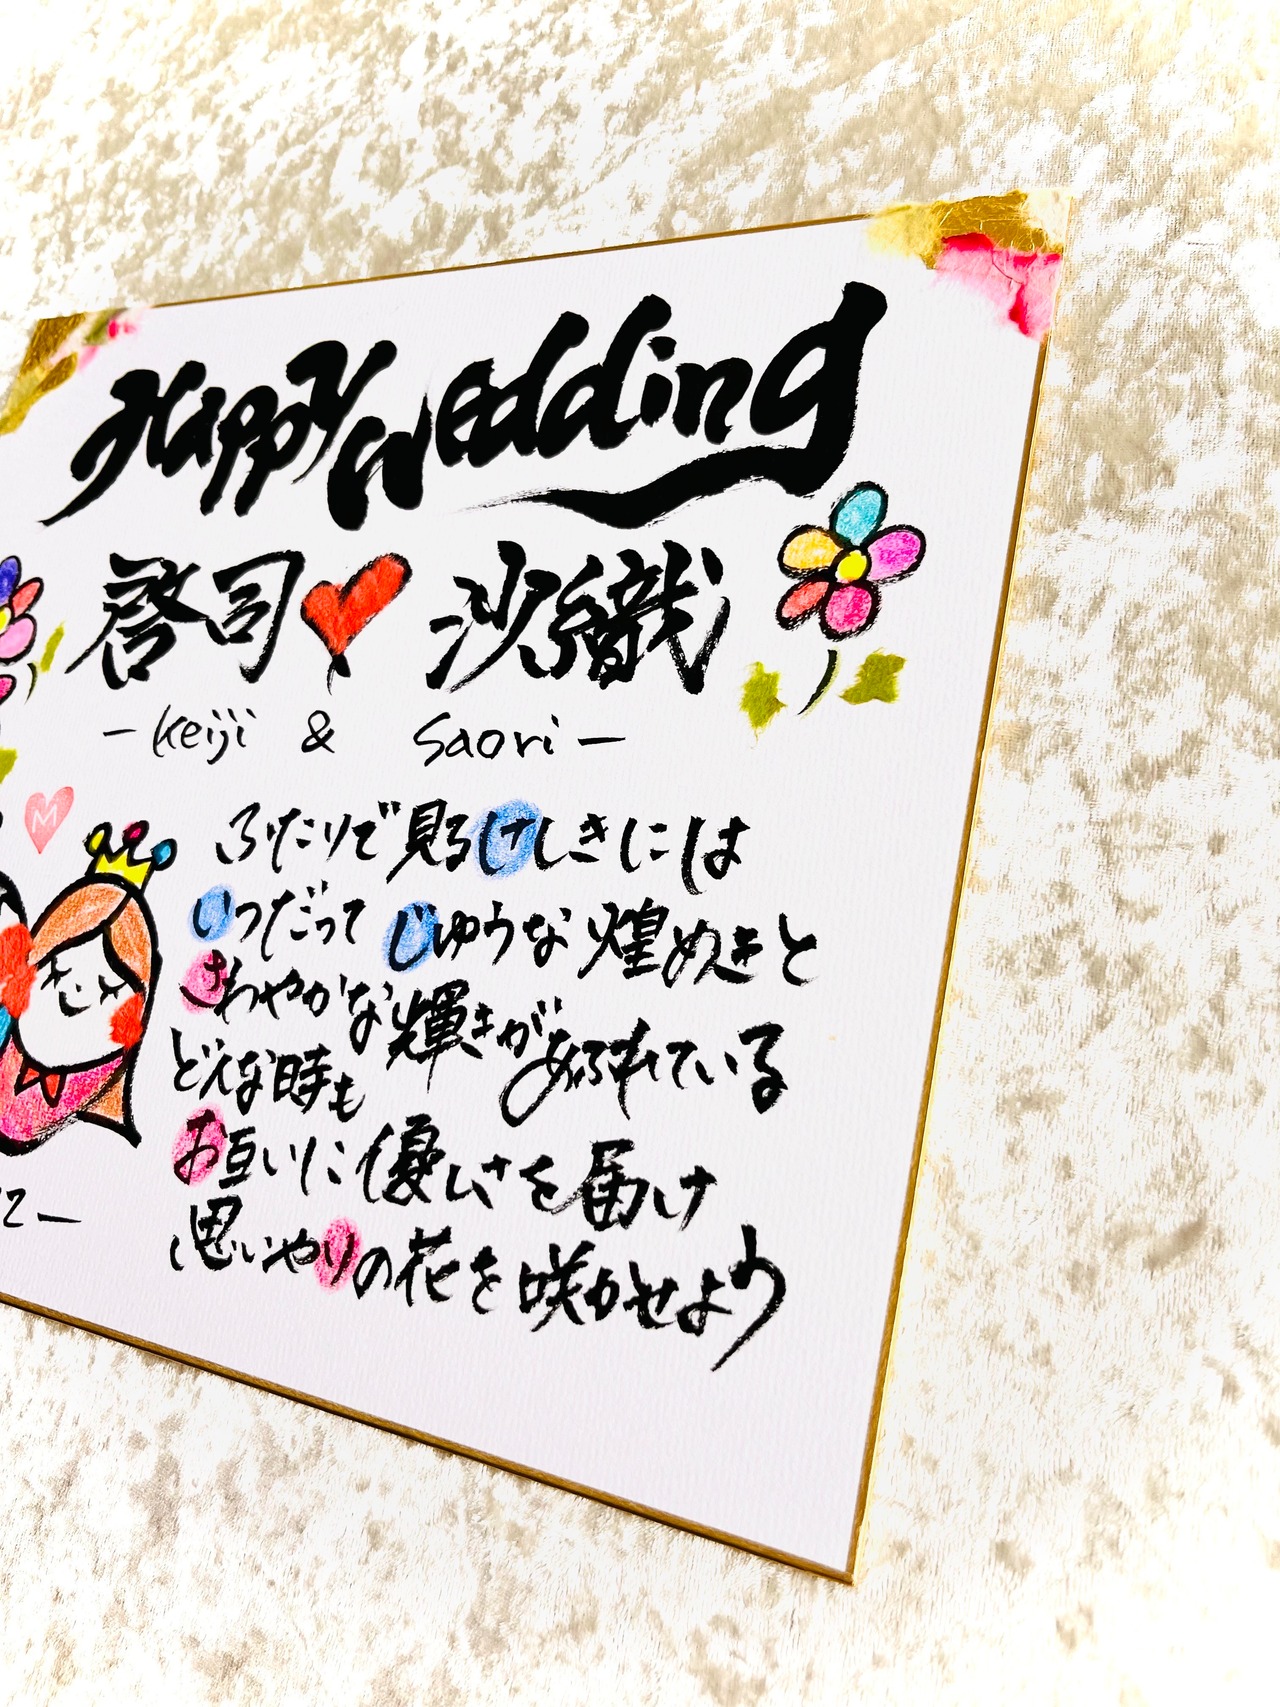 Happy wedding
啓司 沙織
- Keiji & Saori -
M
ふたりで見るけしきには
いつだって じゆうな 煌めきと
さわやかな輝きがあふれている
どんな時も
お互いに優しさを届け
思いやりの花を咲かせよう